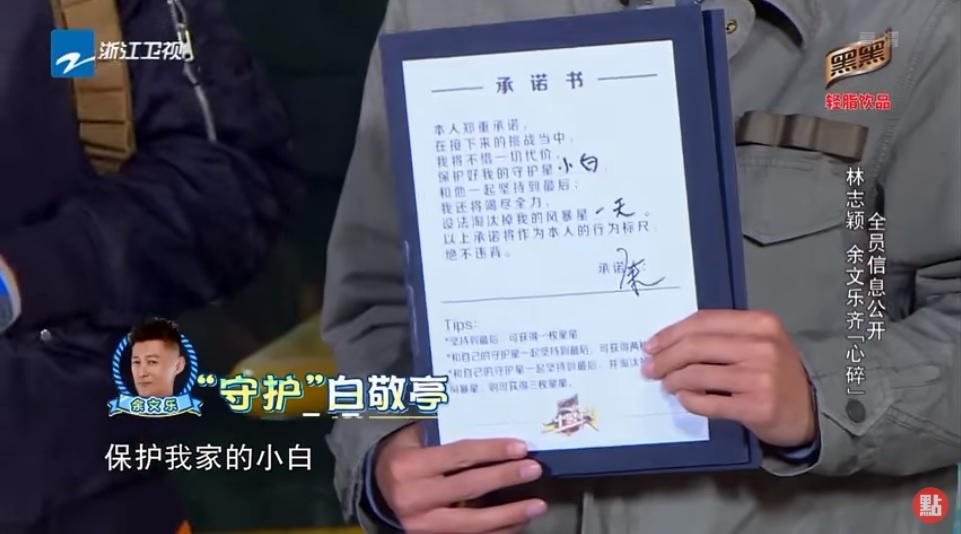 浙江卫视
黑黑
轻脂饮品
承诺书
本人郑重承诺，
在接下来的挑战当中，
我将不惜一切代价，
保护好我的守护星小白，
和他一起坚持到最后；
我还将竭尽全力，
设法淘汰掉我的风暴星一天。
以上承诺将作为本人的行为标尺，
绝不违背。
承诺
Tips:
*坚持到最后，可获得一枚星星
*和自己的守护星一起坚持到最后，可获得两
*和自己的守护星一起坚持到最后，并淘汰
风暴星，则可获得三枚星星。
全员信息公开
林志颖 余文乐齐「心碎」
余文乐
“守护”白敬亭
保护我家的小白
點